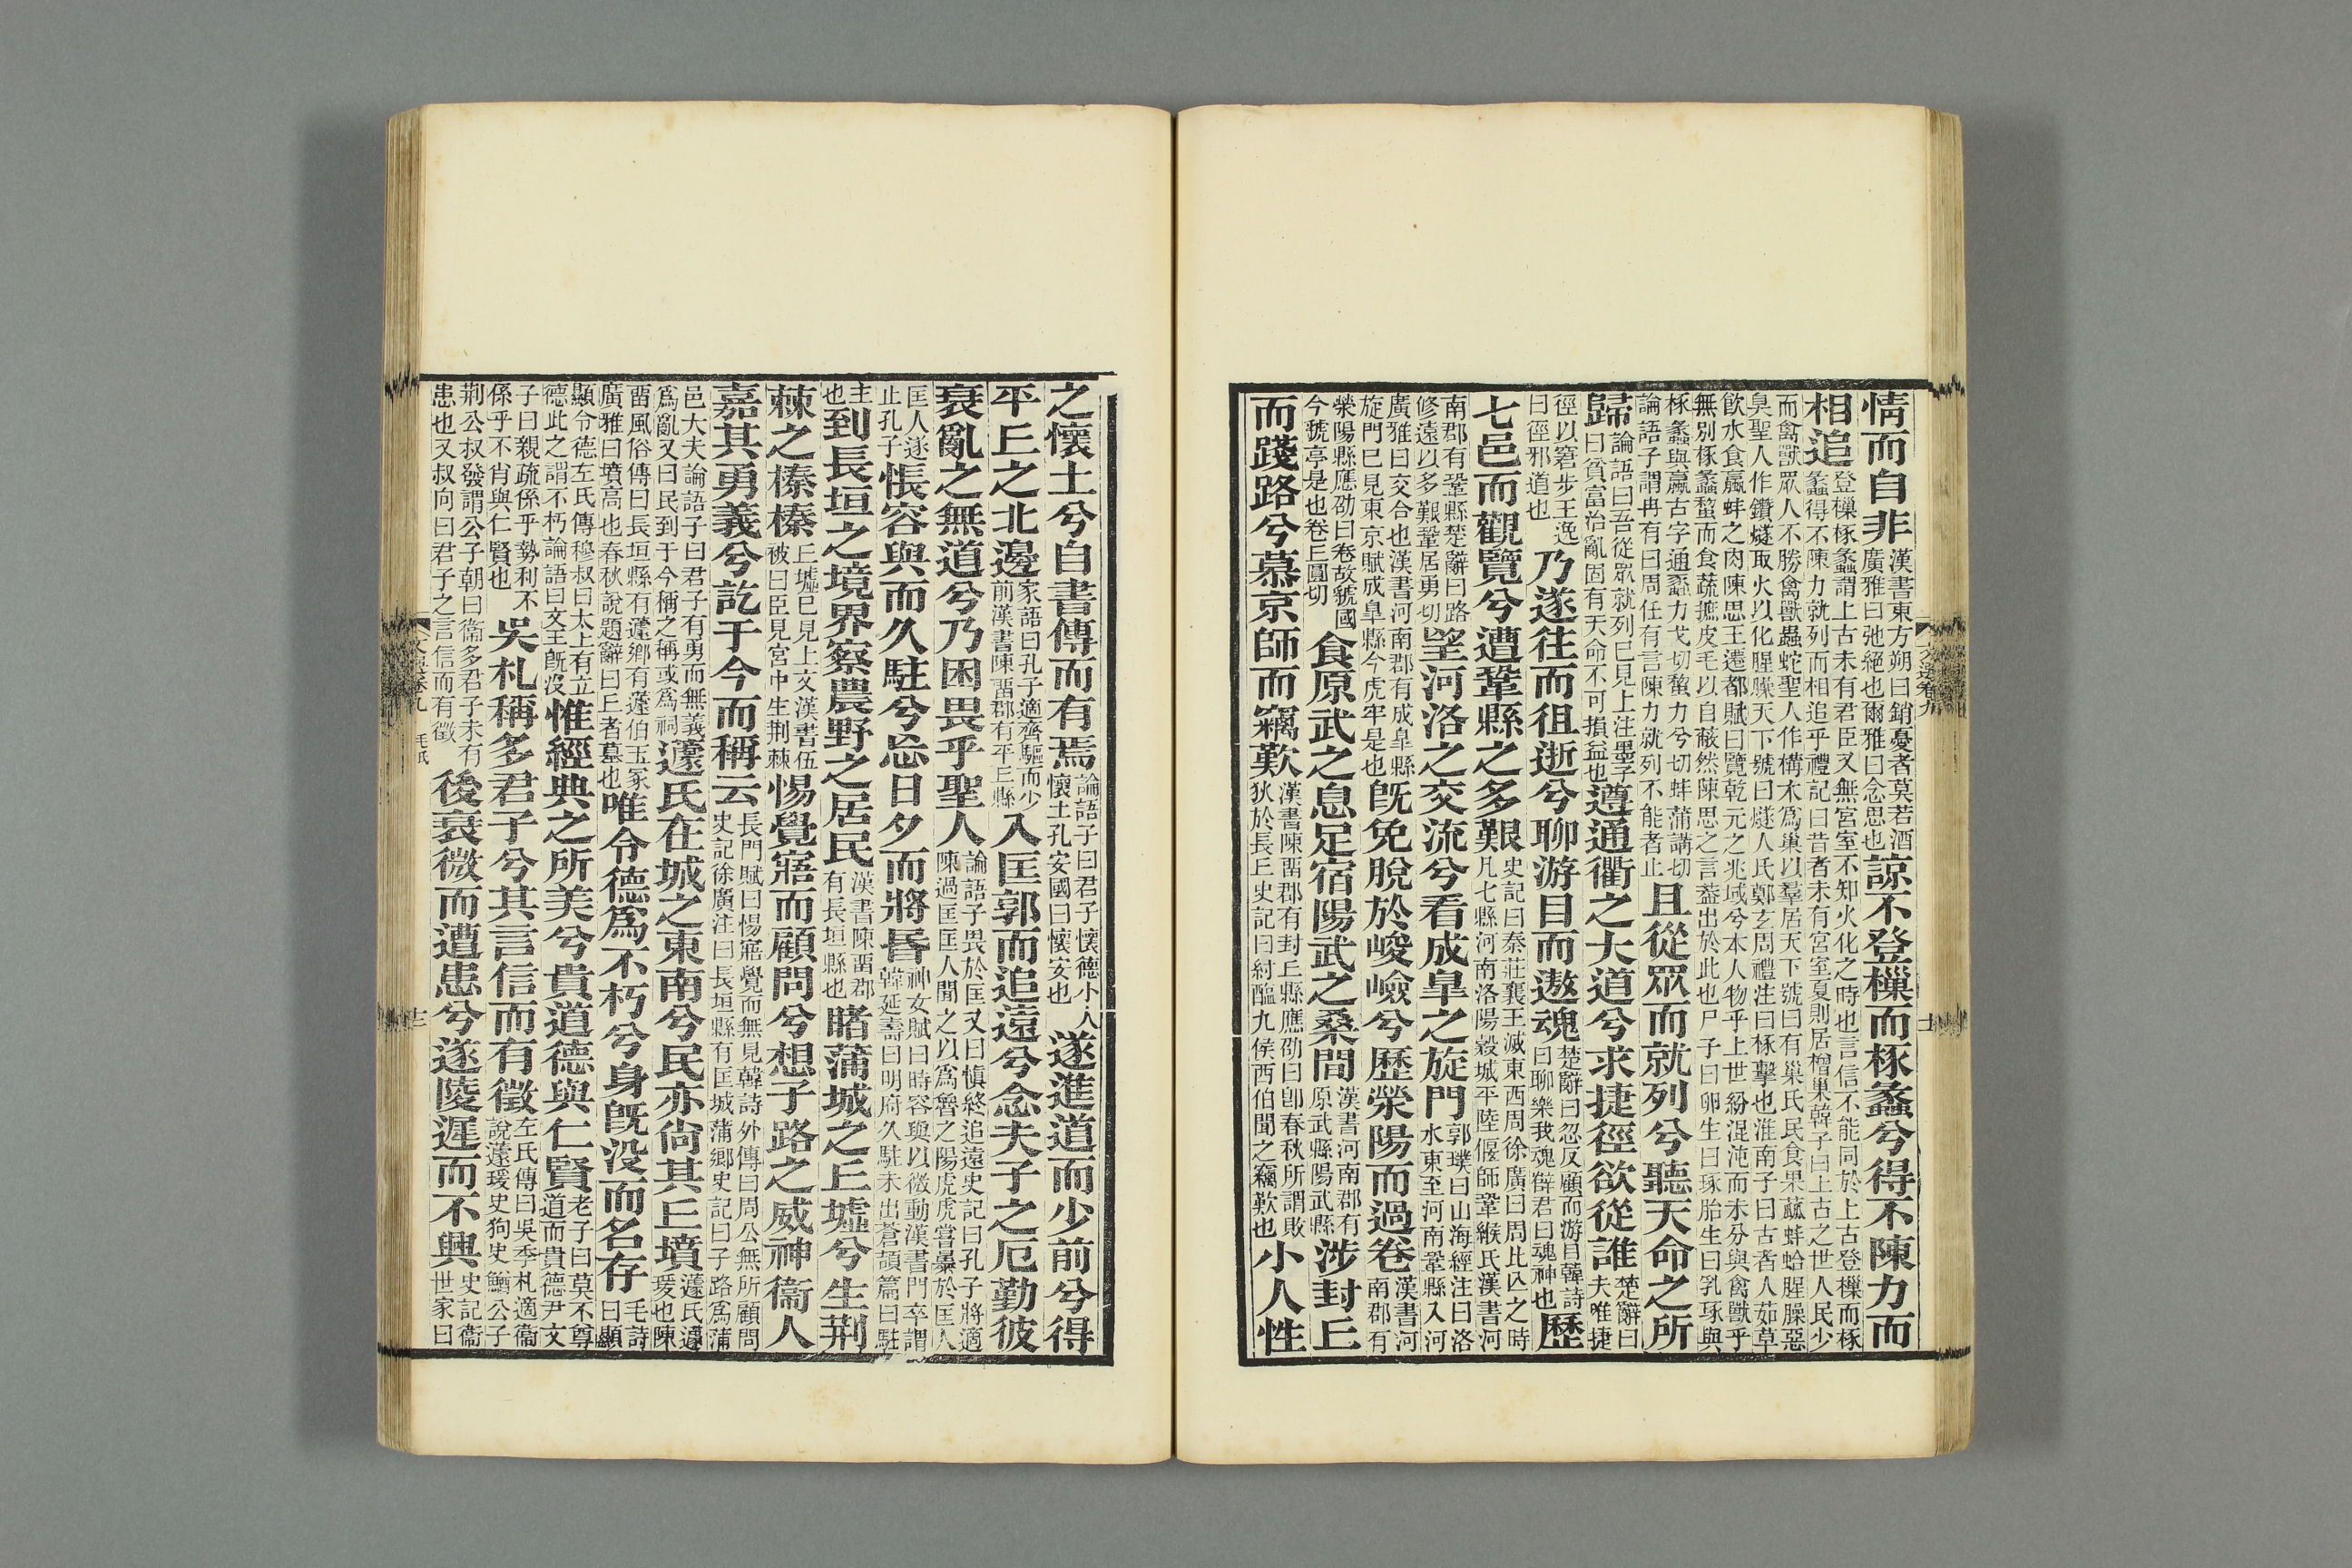 情而自非漢書東方朔曰銷憂者莫若酒廣雅曰弛絕也爾雅曰念思也諒不登樔而椓蠡兮得不陳力而
相追登樔椓蠡謂上古未有君臣又無宮室不知火化之時也言信不能同於上古登樔而椓蠡得不陳力就列而相追乎禮記曰昔者未有宮室夏則居橧巢韓子曰上古之世人民少
而禽獸眾人不勝禽獸蟲蛇聖人作構木為巢以羣居天下號曰有巢氏民食果蓏蚌蛤腥臊惡臭聖人作鑽燧取火以化腥臊天下號曰燧人氏鄭玄周禮注曰椓擊也淮南子曰古者人茹草
飲水食蠃蚌之肉陳思王遷都賦曰覽乾元之兆域兮本人物乎上世紛混沌而未分與禽獸乎無別椓蠡蜇而食蔬摭皮毛以自蔽然陳思之言蓋出於此也尸子曰卵生曰琢胎生曰乳琢與
椓蠡與蠃古字通蠡力戈切蜇力兮切蚌蒲講切論語子謂冉有曰周任有言陳力就列不能者止且從眾而就列兮聽天命之所
歸論語曰吾從眾就列已見上注墨子曰貧富治亂固有天命不可損益也遵通衢之大道兮求捷徑欲從誰楚辭曰夫唯捷
徑以窘步王逸曰徑邪道也乃遂往而徂逝兮聊游目而遨魂楚辭曰忽反顧而游目韓詩曰聊樂我魂薛君曰魂神也歷
七邑而觀覽兮遭鞏縣之多艱史記曰秦莊襄王滅東西周徐廣曰周比亾之時凡七縣河南洛陽穀城平陸偃師鞏緱氏漢書河
南郡有鞏縣楚辭曰路修遠以多艱鞏居勇切望河洛之交流兮看成皐之旋門郭璞曰山海經注曰洛水東至河南鞏縣入河
廣雅曰交合也漢書河南郡有成皐縣旋門已見東京賦成皐縣今虎牢是也旣免脫於峻嶮兮歷滎陽而過卷漢書河南郡有
滎陽縣應劭曰卷故虢國今虢亭是也卷丘圓切食原武之息足宿陽武之桑間漢書河南郡有原武縣陽武縣涉封丘
而踐路兮慕京師而竊歎漢書陳畱郡有封丘縣應劭曰卽春秋所謂敗狄於長丘史記曰紂醢九侯西伯聞之竊歎也小人性
文選卷九
十一
之懷土兮自書傳而有焉論語子曰君子懷德小人懷土孔安國曰懷安也遂進道而少前兮得
平丘之北邊家語曰孔子適齊驅而少前漢書陳畱郡有平丘縣入匡郭而追遠兮念夫子之厄勤彼
衰亂之無道兮乃困畏乎聖人論語子畏於匡又曰愼終追遠史記曰孔子將適陳過匡匡人聞之以為魯之陽虎虎嘗暴於匡人
匡人遂止孔子悵容與而久駐兮忘日夕而將昏神女賦曰時容與以微動漢書門卒謂韓延壽曰明府久駐未出蒼頡篇曰駐
主也到長垣之境界察農野之居民漢書陳畱郡有長垣縣也睹蒲城之丘墟兮生荆
棘之榛榛丘墟已見上文漢書伍被曰臣見宮中生荆棘惕覺寤而顧問兮想子路之威神衞人
嘉其勇義兮訖于今而稱云長門賦曰惕寤覺而無見韓詩外傳曰周公無所顧問史記徐廣注曰長垣縣有匡城蒲鄉史記曰子路為蒲
邑大夫論語子曰君子有勇而無義為亂又曰民到于今稱之稱或為祠蘧氏在城之東南兮民亦尙其丘墳蘧氏蘧瑗也陳
畱風俗傳曰長垣縣有蘧鄉有蘧伯玉冢廣雅曰墳高也春秋說題辭曰丘者墓也唯令德為不朽兮身旣沒而名存毛詩曰顯
顯令德左氏傳穆叔曰太上有立德此之謂不朽論語曰文王旣沒惟經典之所美兮貴道德與仁賢老子曰莫不尊道而貴德尹文
子曰親疏係乎勢利不係乎不肖與仁賢也吳札稱多君子兮其言信而有徵左氏傳曰吳季札適衞說蘧瑗史狗史鰌公子
荆公叔發謂公子朝曰衞多君子未有患也又叔向曰君子之言信而有徵後衰微而遭患兮遂陵遲而不興史記衞世家曰
文選卷九
十二